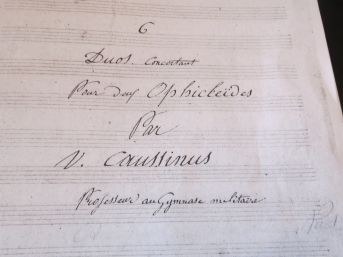 6
Duos. Concertant
Pour deux Ophicleïdes
Par
V. Caussinus
Professeur au Gymnase militaire